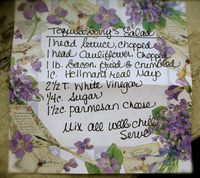 Salad
1 head lettuce, chopped
1 head Cauliflower, Chopped
1 lb. Bacon, fried & crumbled
1c. Hellmans real Mayo
2 1/2 T. White Vinegar
1/4c. Sugar
1 1/2c. Parmesan Cheese
Mix all well, chill
Serve